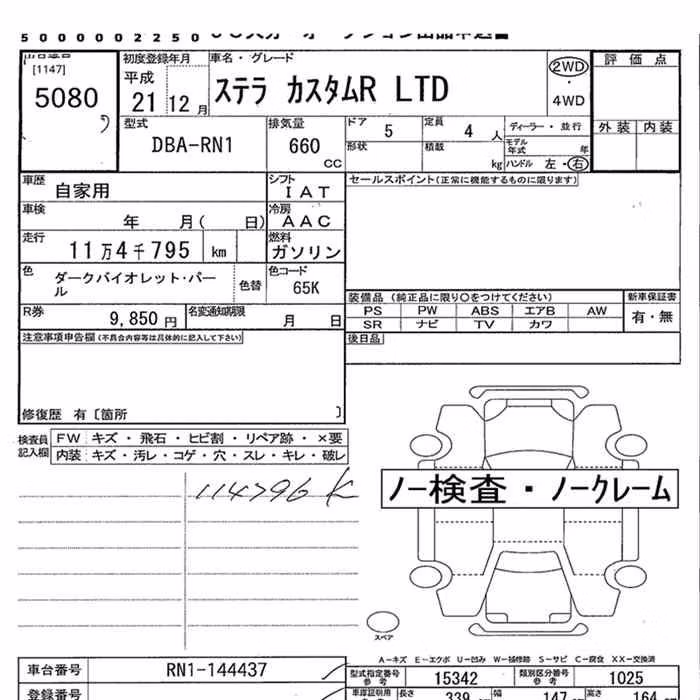 5000002250
[1147]
5080
初度登録年月
平成
21 12 月
車名・グレード
ステラ カスタムR LTD
2WD
・
4WD
評価点
外装 内装
型式
DBA-RN1
排気量
660
CC
ドア
5
定員
4 人
形状
積載
kg
ディーラー・並行
モデル年式 年
ハンドル 左・右
車歴
自家用
シフト
IAT
車検
年 月( 日)
冷房
AAC
走行
11万4千795 km
燃料
ガソリン
色
ダークバイオレット・パール
色替
色コード
65K
R券
9,850 円
名変通知期限
月 日
セールスポイント(正常に機能するものに限ります)
装備品 (純正品に限り○をつけてください)
PS PW ABS エアB AW
SR ナビ TV カワ
新車保証書
有・無
後日品
注意事項申告欄(不具合内容等は具体的に記入して下さい)
修復歴 有〔箇所 〕
検査員記入欄
FW キズ・飛石・ヒビ割・リペア跡・×要
内装 キズ・汚レ・コゲ・穴・スレ・キレ・破レ
114796 K
ノー検査・ノークレーム
スペア
A-キズ E-エクボ U-凹み W-補修跡 S-サビ C-腐食 XX-交換済
車台番号
RN1-144437
型式指定番号 参考
15342
類別区分番号 参考
1025
登録番号
長さ
339
幅
147
高さ
164